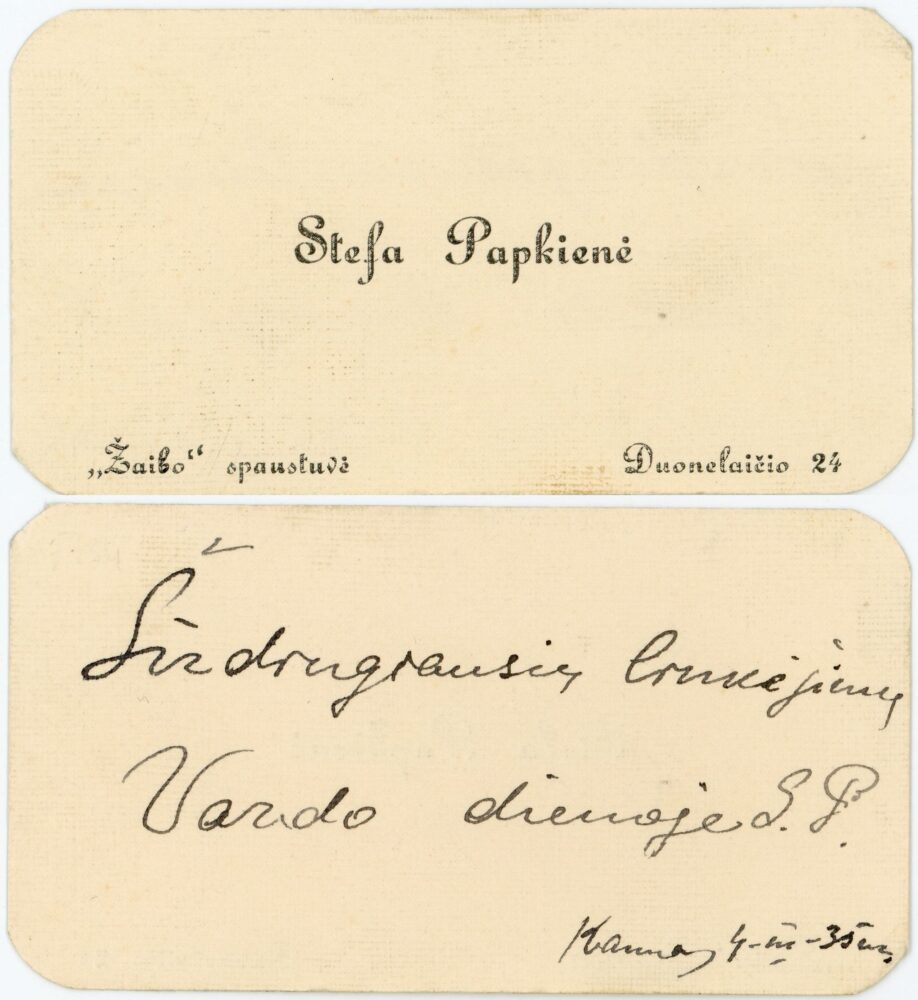 Stefa Papkienė
„Žaibo“ spaustuvė Duonelaičio 24
Širdingiausių linkėjimų
Vardo dienoje S. P.
Kaunas 4-III-35 m.